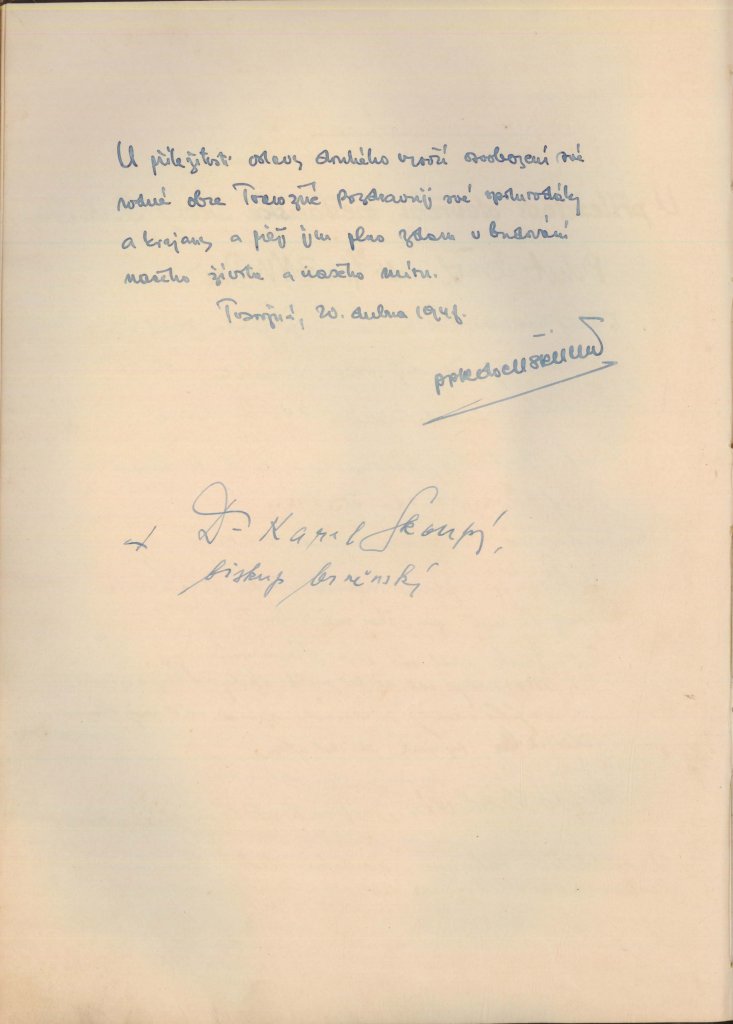 U příležitosti oslavy druhého výročí osvobození své
rodné obce Tvarožné pozdravuji své spolurodáky
a krajany a přeji jim plno zdaru v budování
našeho života a našeho míru.
Tvarožná, 20. dubna 1947.
Dr Karel Skoupý,
biskup brněnský